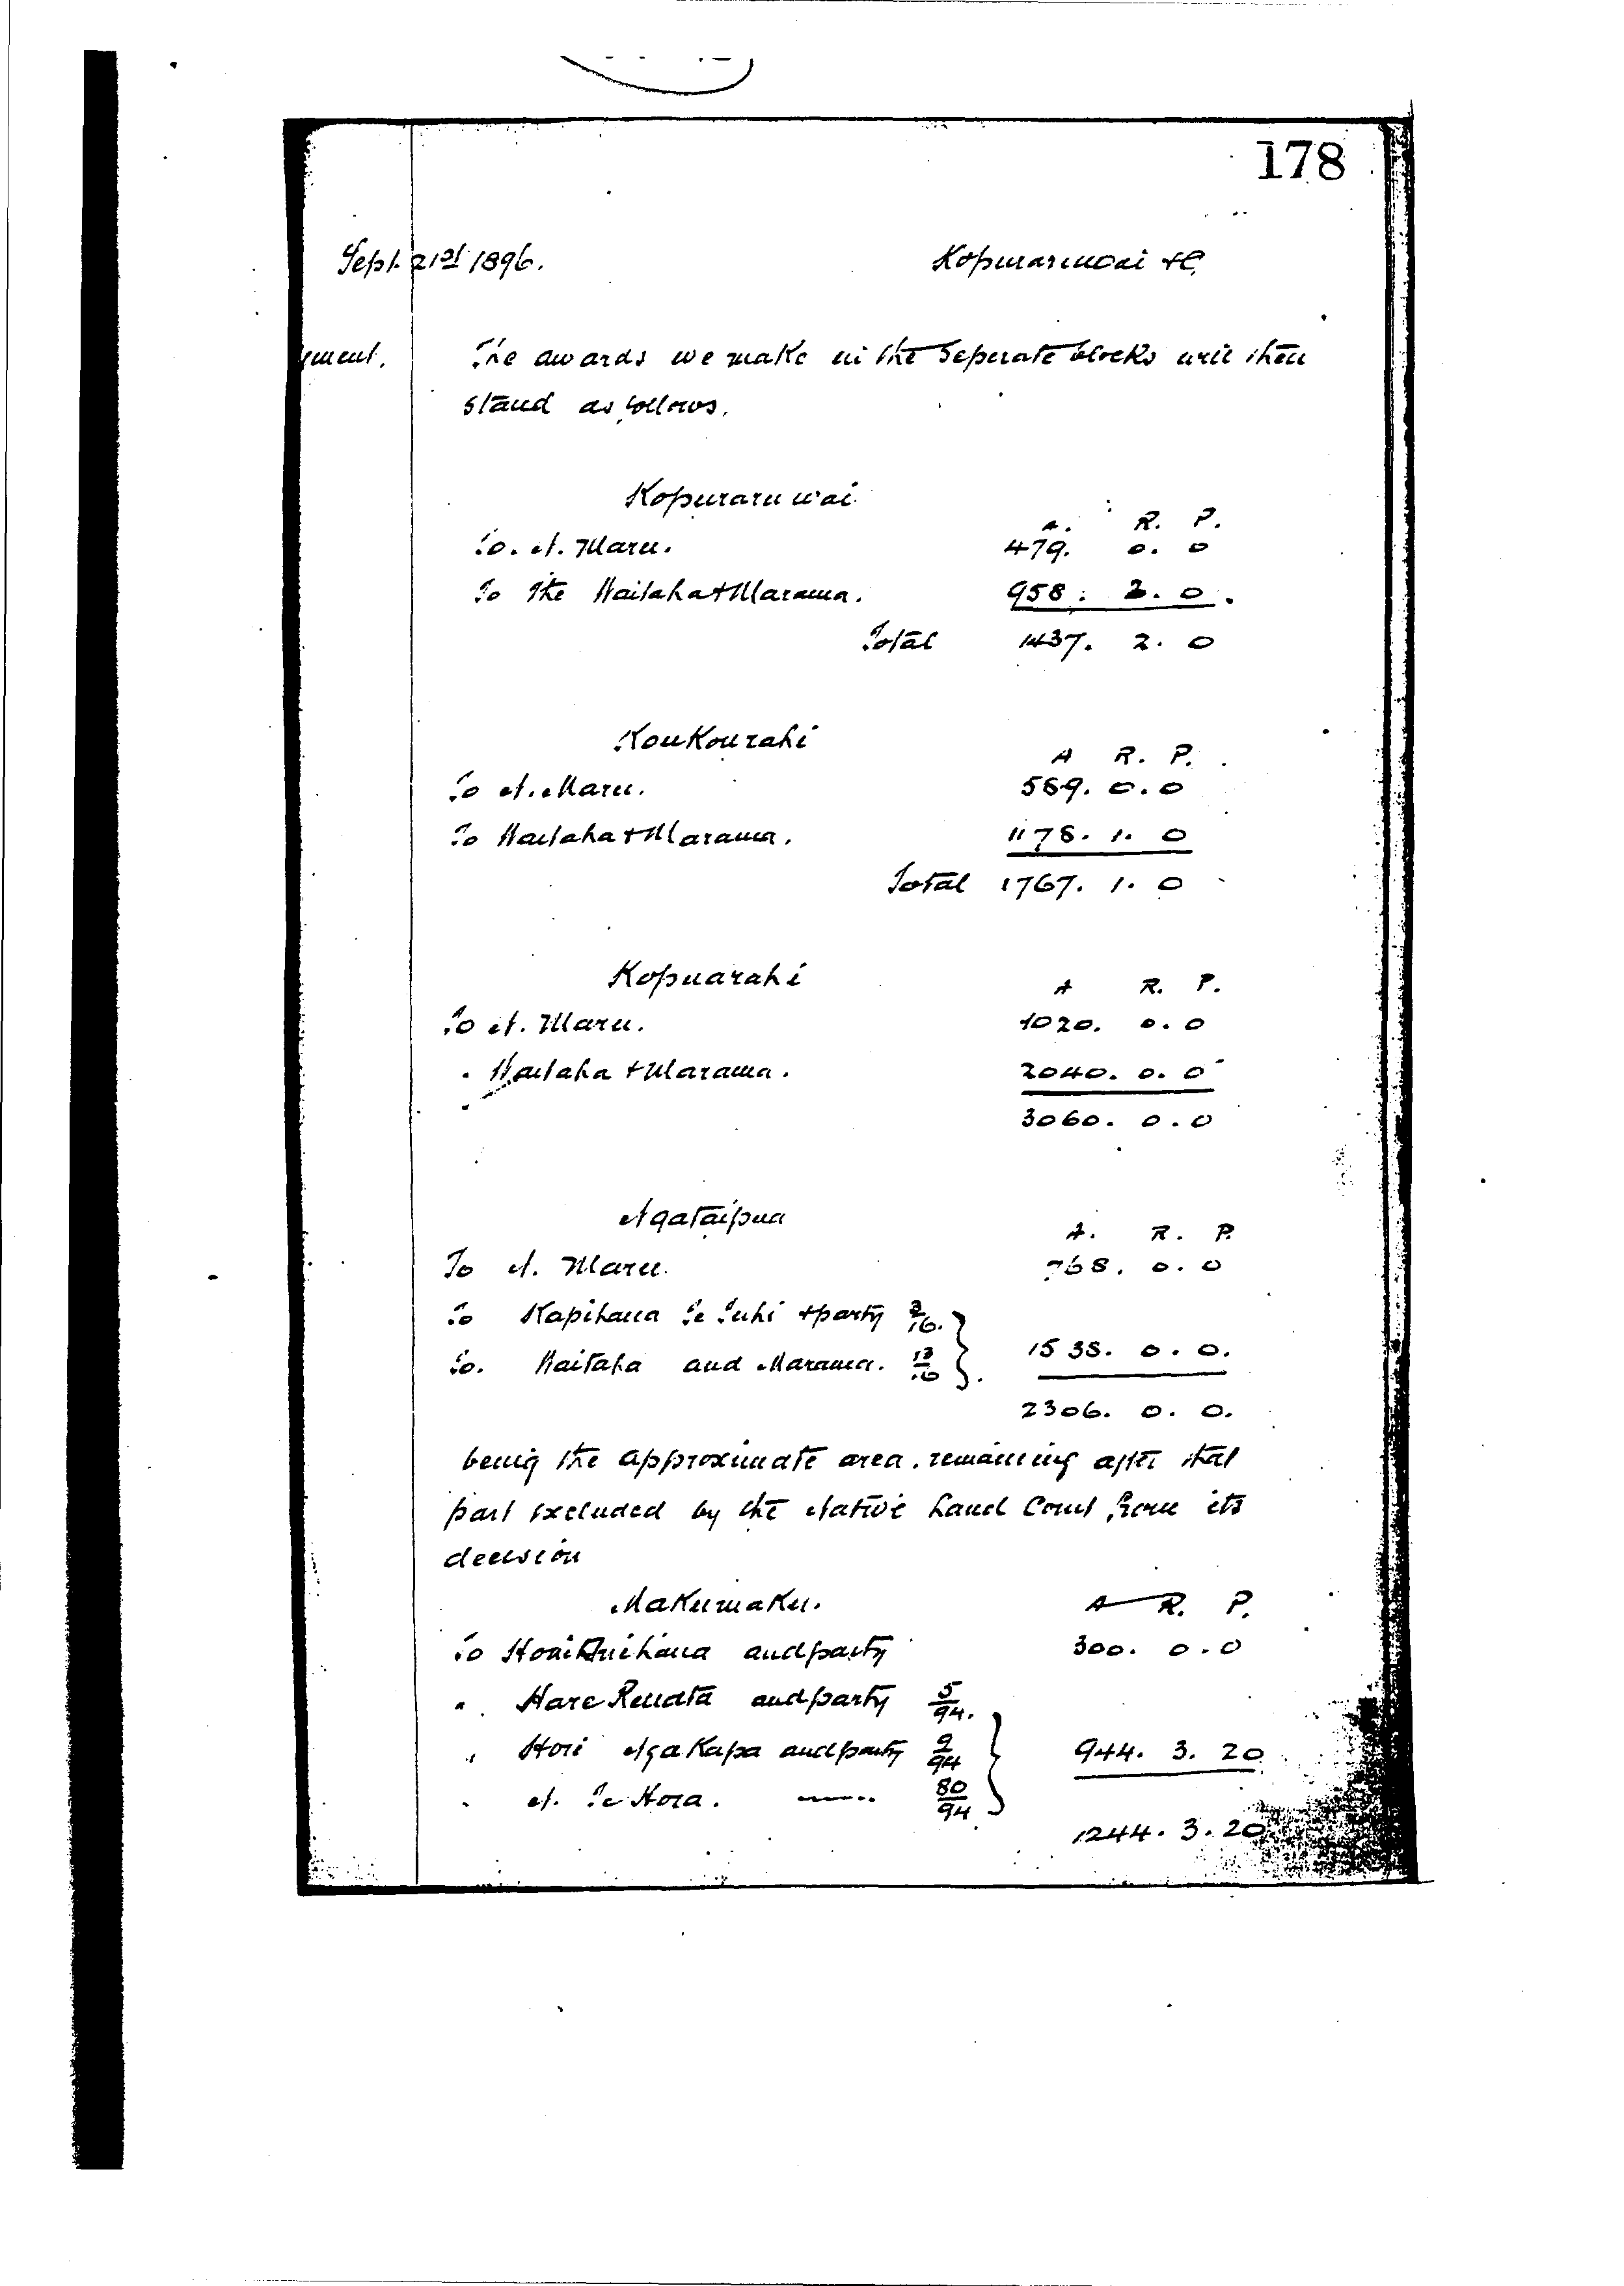 178
Sept. 21st 1896. Kopuraruwai &c.
gment. The awards we make in the Seperate blocks will then
stand as follows.
Kopuraruwai
A. R. P.
To. N. Maru. 479. 0. 0
To the Waitaha & Marama. 958. 2. 0.
Total 1437. 2. 0
Koukourahi
A R. P.
To N. Maru. 589. 0. 0
To Waitaha & Marama. 1178. 1. 0
Total 1767. 1. 0
Kopuarahi
A R. P.
To N. Maru. 1020. 0. 0
" Waitaha & Marama. 2040. 0. 0
3060. 0. 0
Ngataipua
A. R. P.
To N. Maru. 768. 0. 0
To Kapihana Te Tuhi & party 3/16.
To. Waitaha and Marama. 13/16 } 1538. 0. 0.
2306. 0. 0.
being the approximate area remaining after that
part excluded by the Native Land Court from its
decision
Makumaku.
A R. P.
To Honi and party 300. 0. 0
" Hare Renata and party 5/94.
" Hori Ngakapa and party 9/94 } 944. 3. 20
" N. Te Hora. 80/94
1244. 3. 20